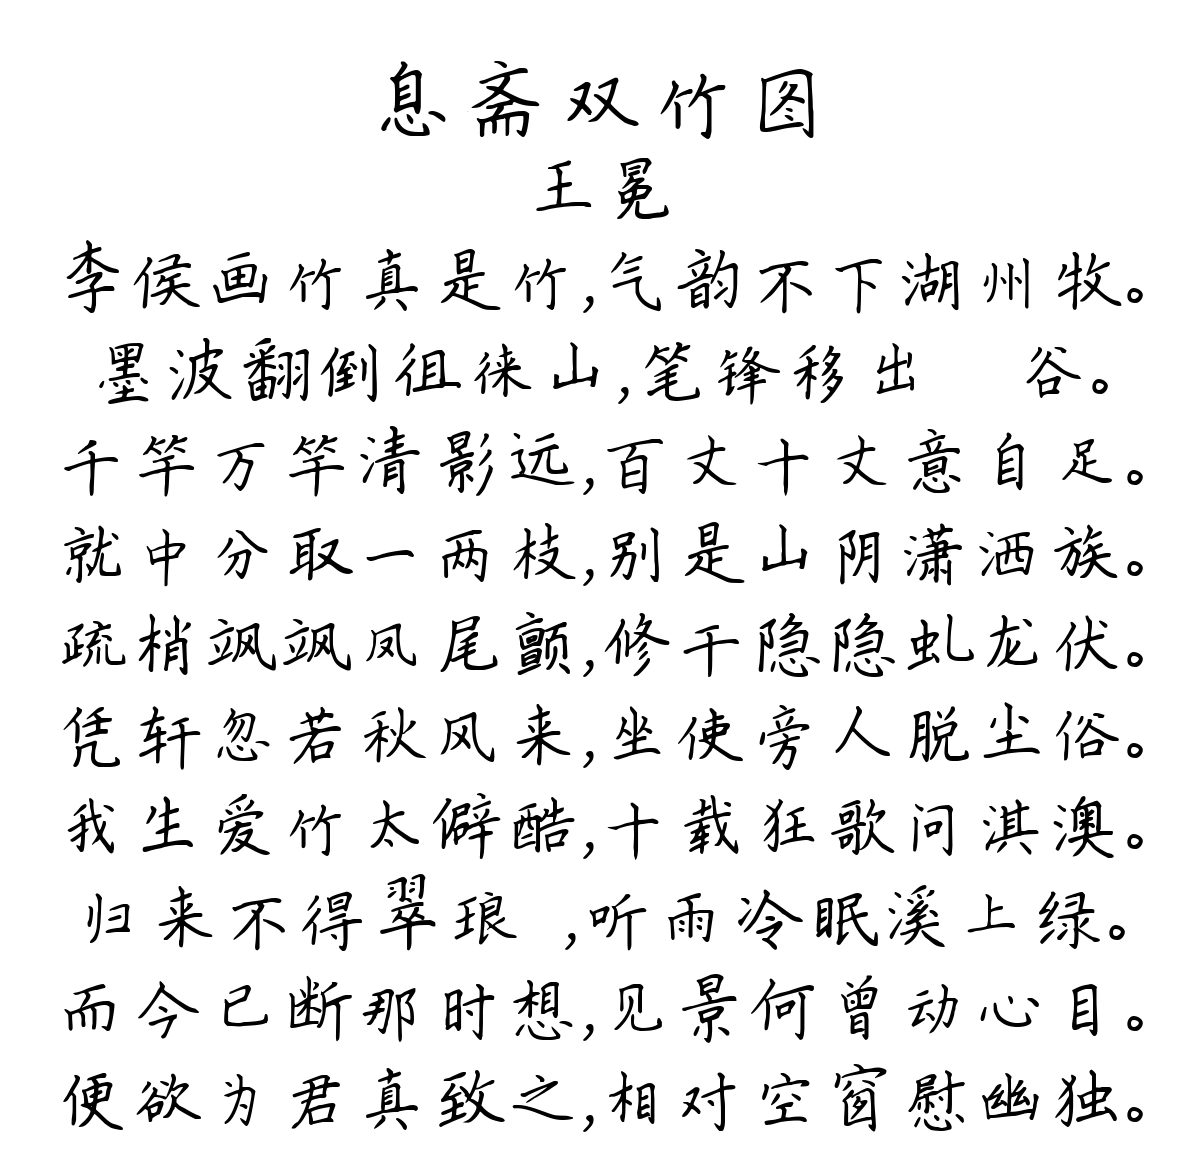 息斋双竹图
王冕
李侯画竹真是竹,气韵不下湖州牧。
墨波翻倒徂徕山,笔锋移出 谷。
千竿万竿清影远,百丈十丈意自足。
就中分取一两枝,别是山阴潇洒族。
疏梢飒飒凤尾颤,修干隐隐虬龙伏。
凭轩忽若秋风来,坐使旁人脱尘俗。
我生爱竹太僻酷,十载狂歌问淇澳。
归来不得翠琅 ,听雨冷眠溪上绿。
而今已断那时想,见景何曾动心目。
便欲为君真致之,相对空窗慰幽独。